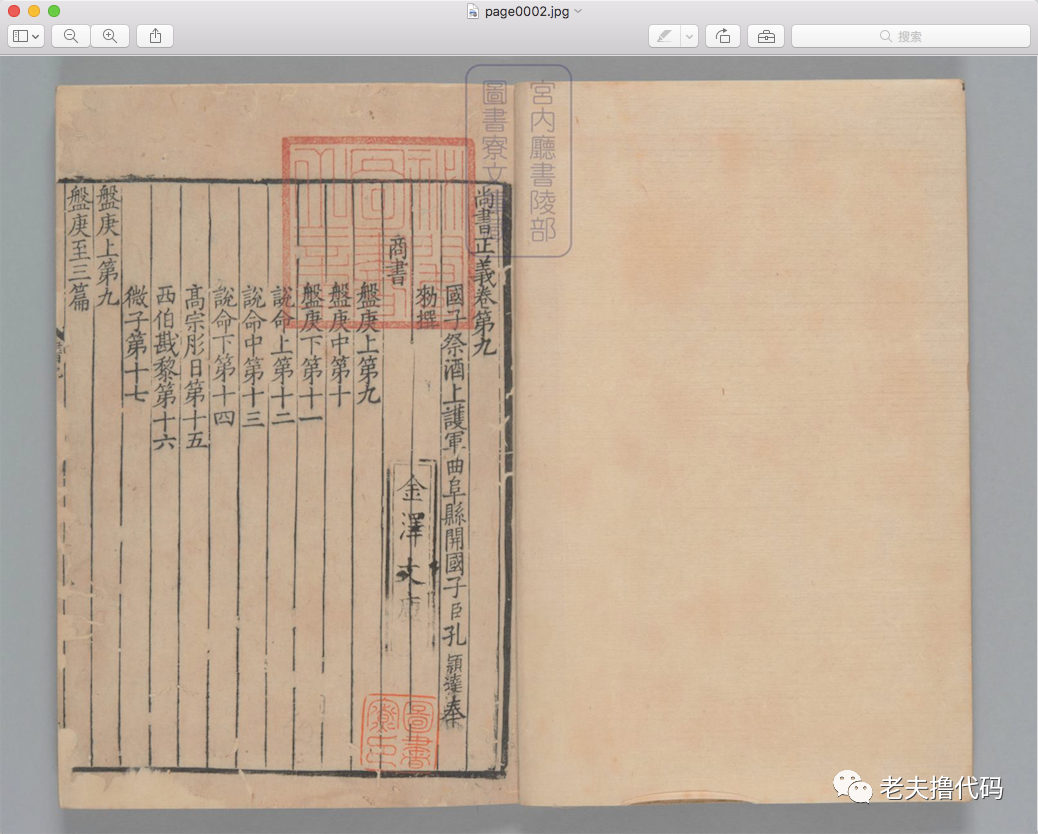 page0002.jpg
搜索
宮内廳書陵部
圖書寮文庫
尚書正義卷第九
國子祭酒上護軍曲阜縣開國子臣孔穎達奉
勑撰
商書
盤庚上第九
盤庚中第十
盤庚下第十一
說命上第十二
說命中第十三
說命下第十四
髙宗肜日第十五
西伯戡黎第十六
微子第十七
盤庚上第九
盤庚至三篇
金澤文庫
圖書
寮印
老夫撸代码